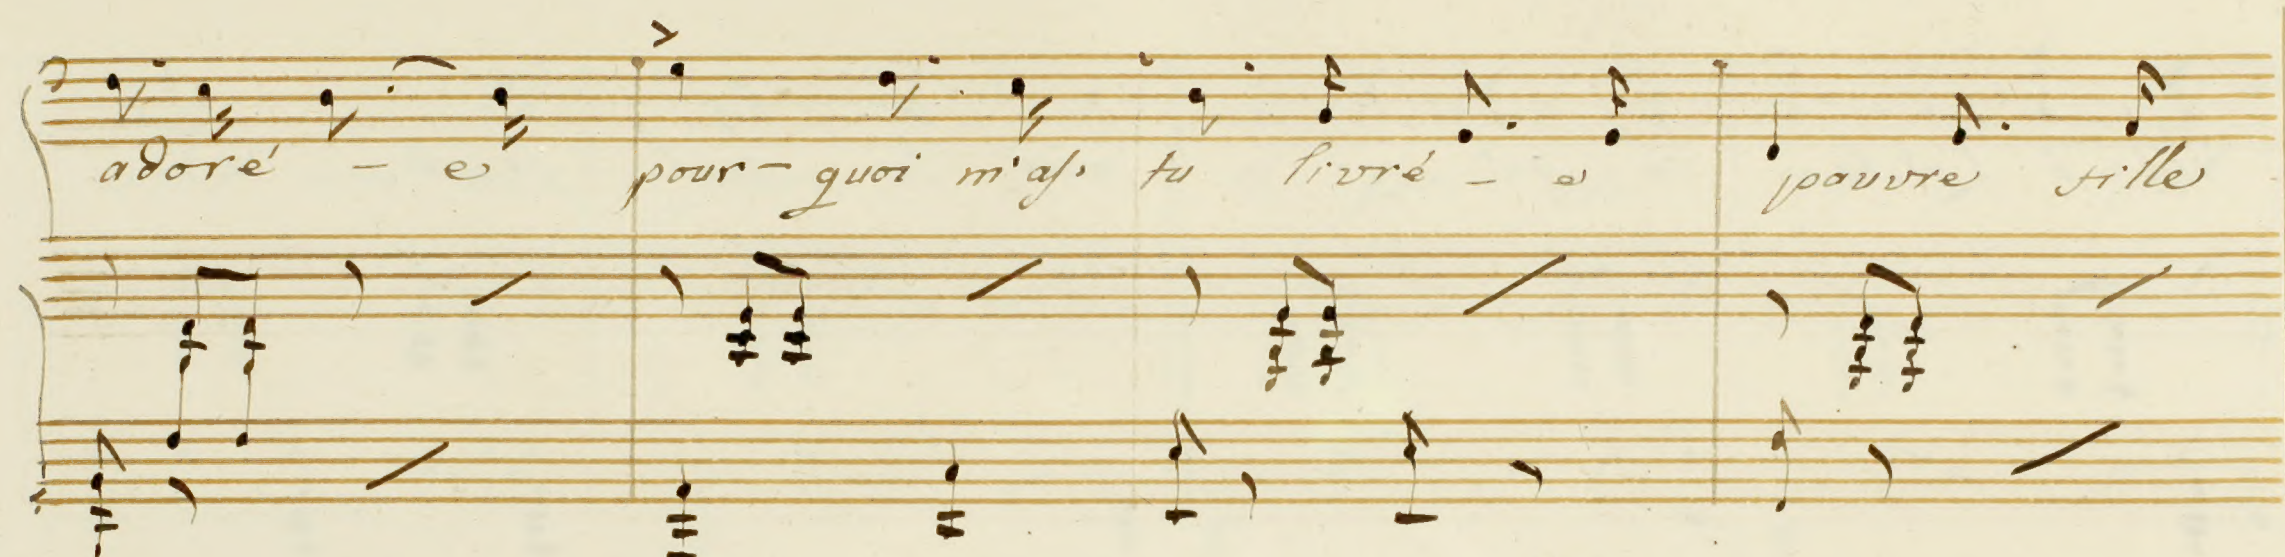 adoré - e pour - quoi m'as tu livré - e pauvre fille